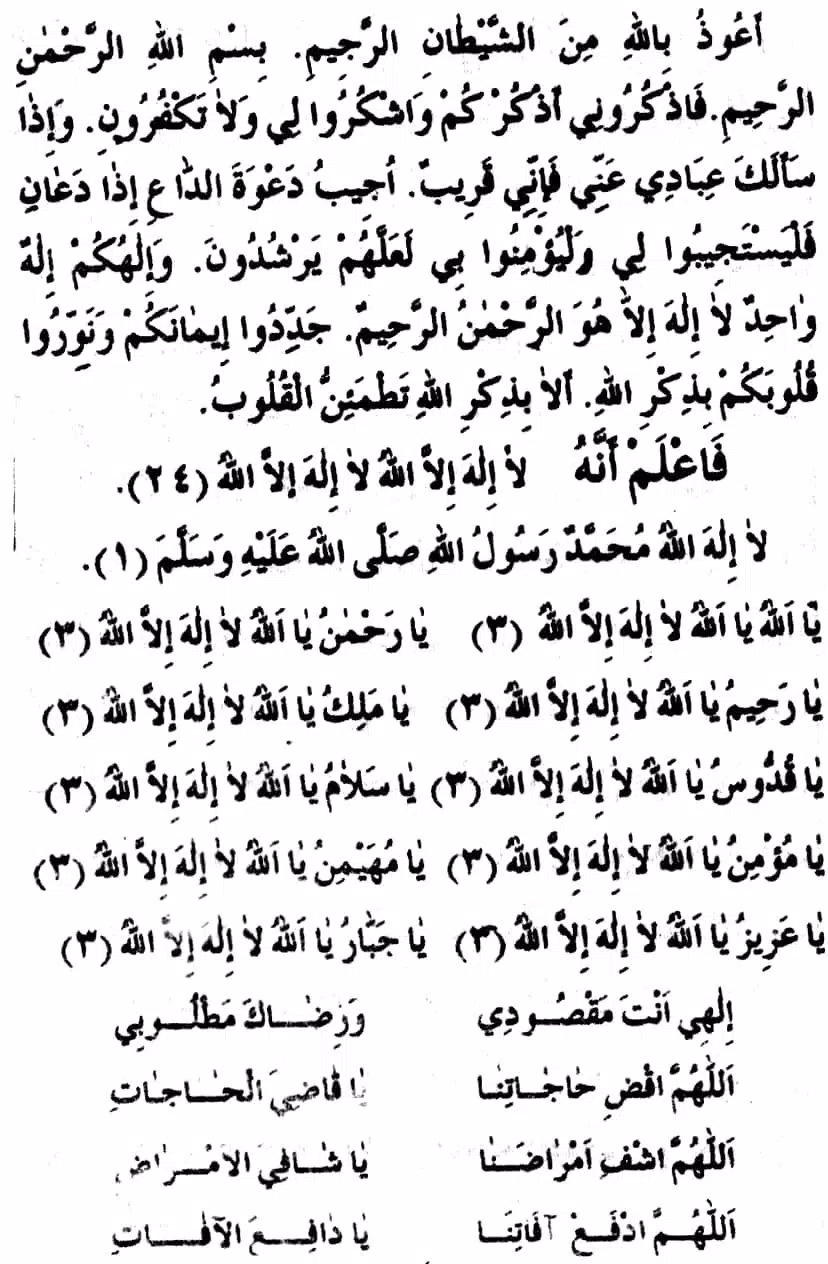 أَعُوذُ بِاللهِ مِنَ الشَّيْطَانِ الرَّجِيمِ. بِسْمِ اللهِ الرَّحْمٰنِ
الرَّحِيمِ. فَاذْكُرُونِي أَذْكُرْكُمْ وَاشْكُرُوا لِي وَلاَ تَكْفُرُونِ. وَإِذَا
سَأَلَكَ عِبَادِي عَنِّي فَإِنِّي قَرِيبٌ. أُجِيبُ دَعْوَةَ الدَّاعِ إِذَا دَعَانِ
فَلْيَسْتَجِيبُوا لِي وَلْيُؤْمِنُوا بِي لَعَلَّهُمْ يَرْشُدُونَ. وَإِلٰهُكُمْ إِلٰهٌ
وَاحِدٌ لاَ إِلٰهَ إِلاَّ هُوَ الرَّحْمٰنُ الرَّحِيمُ. جَدِّدُوا إِيمَانَكُمْ وَنَوِّرُوا
قُلُوبَكُمْ بِذِكْرِ اللهِ. أَلاَ بِذِكْرِ اللهِ تَطْمَئِنُّ الْقُلُوبُ.
فَاعْلَمْ أَنَّهُ لاَ إِلٰهَ إِلاَّ اللهُ لاَ إِلٰهَ إِلاَّ اللهُ (٢٤).
لاَ إِلٰهَ اللهُ مُحَمَّدٌ رَسُولُ اللهِ صَلَّى اللهُ عَلَيْهِ وَسَلَّمَ (١).
يَا اَللهُ يَا اَللهُ لاَ إِلٰهَ إِلاَّ اللهُ (٣) يَا رَحْمٰنُ يَا اَللهُ لاَ إِلٰهَ إِلاَّ اللهُ (٣)
يَا رَحِيمُ يَا اَللهُ لاَ إِلٰهَ إِلاَّ اللهُ (٣) يَا مَلِكُ يَا اَللهُ لاَ إِلٰهَ إِلاَّ اللهُ (٣)
يَا قُدُّوسُ يَا اَللهُ لاَ إِلٰهَ إِلاَّ اللهُ (٣) يَا سَلاَمُ يَا اَللهُ لاَ إِلٰهَ إِلاَّ اللهُ (٣)
يَا مُؤْمِنُ يَا اَللهُ لاَ إِلٰهَ إِلاَّ اللهُ (٣) يَا مُهَيْمِنُ يَا اَللهُ لاَ إِلٰهَ إِلاَّ اللهُ (٣)
يَا عَزِيزُ يَا اَللهُ لاَ إِلٰهَ إِلاَّ اللهُ (٣) يَا جَبَّارُ يَا اَللهُ لاَ إِلٰهَ إِلاَّ اللهُ (٣)
إِلٰهِي اَنْتَ مَقْصُودِي وَرِضَاكَ مَطْلُوبِي
اَللّٰهُمَّ اقْضِ حَاجَاتِنَا يَا قَاضِيَ الْحَاجَاتِ
اَللّٰهُمَّ اشْفِ اَمْرَاضَنَا يَا شَافِيَ الاَمْرَاضِ
اَللّٰهُمَّ ادْفَعْ آفَاتِنَا يَا دَافِعَ الآفَاتِ